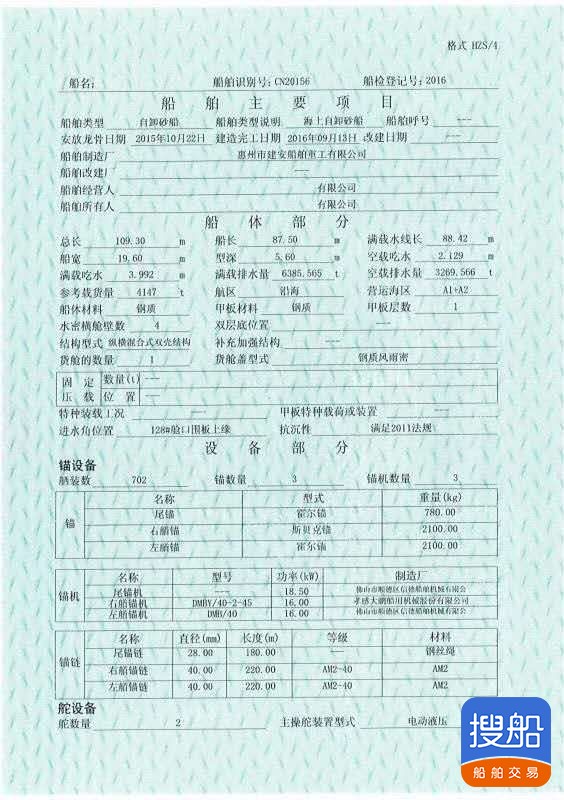 格式 HZS/4
船名: 船舶识别号: CN20156 船检登记号: 2016
船舶主要项目
船舶类型 自卸砂船 船舶类型说明 海上自卸砂船 船舶呼号 ---
安放龙骨日期 2015年10月22日 建造完工日期 2016年09月13日 改建日期 ---
船舶制造厂 惠州市建安船舶重工有限公司
船舶改建厂 ---
船舶经营人 有限公司
船舶所有人 有限公司
船体部分
总长 109.30 m 船长 87.50 m 满载水线长 88.42 m
船宽 19.60 m 型深 5.60 m 空载吃水 2.129 m
满载吃水 3.992 m 满载排水量 6385.565 t 空载排水量 3269.566 t
参考载货量 4147 t 航区 沿海 营运海区 A1+A2
船体材料 钢质 甲板材料 钢质 甲板层数 1
水密横舱壁数 4 双层底位置 ---
结构型式 纵横混合式双壳结构 补充加强结构 ---
货舱的数量 1 货舱盖型式 钢质风雨密
固定 数量(t) ---
压载 位置 ---
特种装载工况 --- 甲板特种载荷或装置 ---
进水角位置 128#舱口围板上缘 抗沉性 满足2011法规
设备部分
锚设备
舾装数 702 锚数量 3 锚机数量 3
锚
名称 型式 重量(kg)
尾锚 霍尔锚 780.00
右艏锚 斯贝克锚 2100.00
左艏锚 霍尔锚 2100.00
锚机
名称 型号 功率(kW) 制造厂
尾锚机 --- 18.50 佛山市顺德区信德船舶机械有限公
右艏锚机 DMBY/40-2-45 16.00 孝感大鹏船用机械股份有限公司
左艏锚机 DMB/40 16.00 佛山市顺德区信德船舶机械有限公
锚链
名称 直径(mm) 长度(m) 等级 材料
尾锚链 28.00 180.00 --- 钢丝绳
右艏锚链 40.00 220.00 AM2-40 AM2
左艏锚链 40.00 220.00 AM2-40 AM2
舵设备
舵数量 2 主操舵装置型式 电动液压
搜船
船舶交易